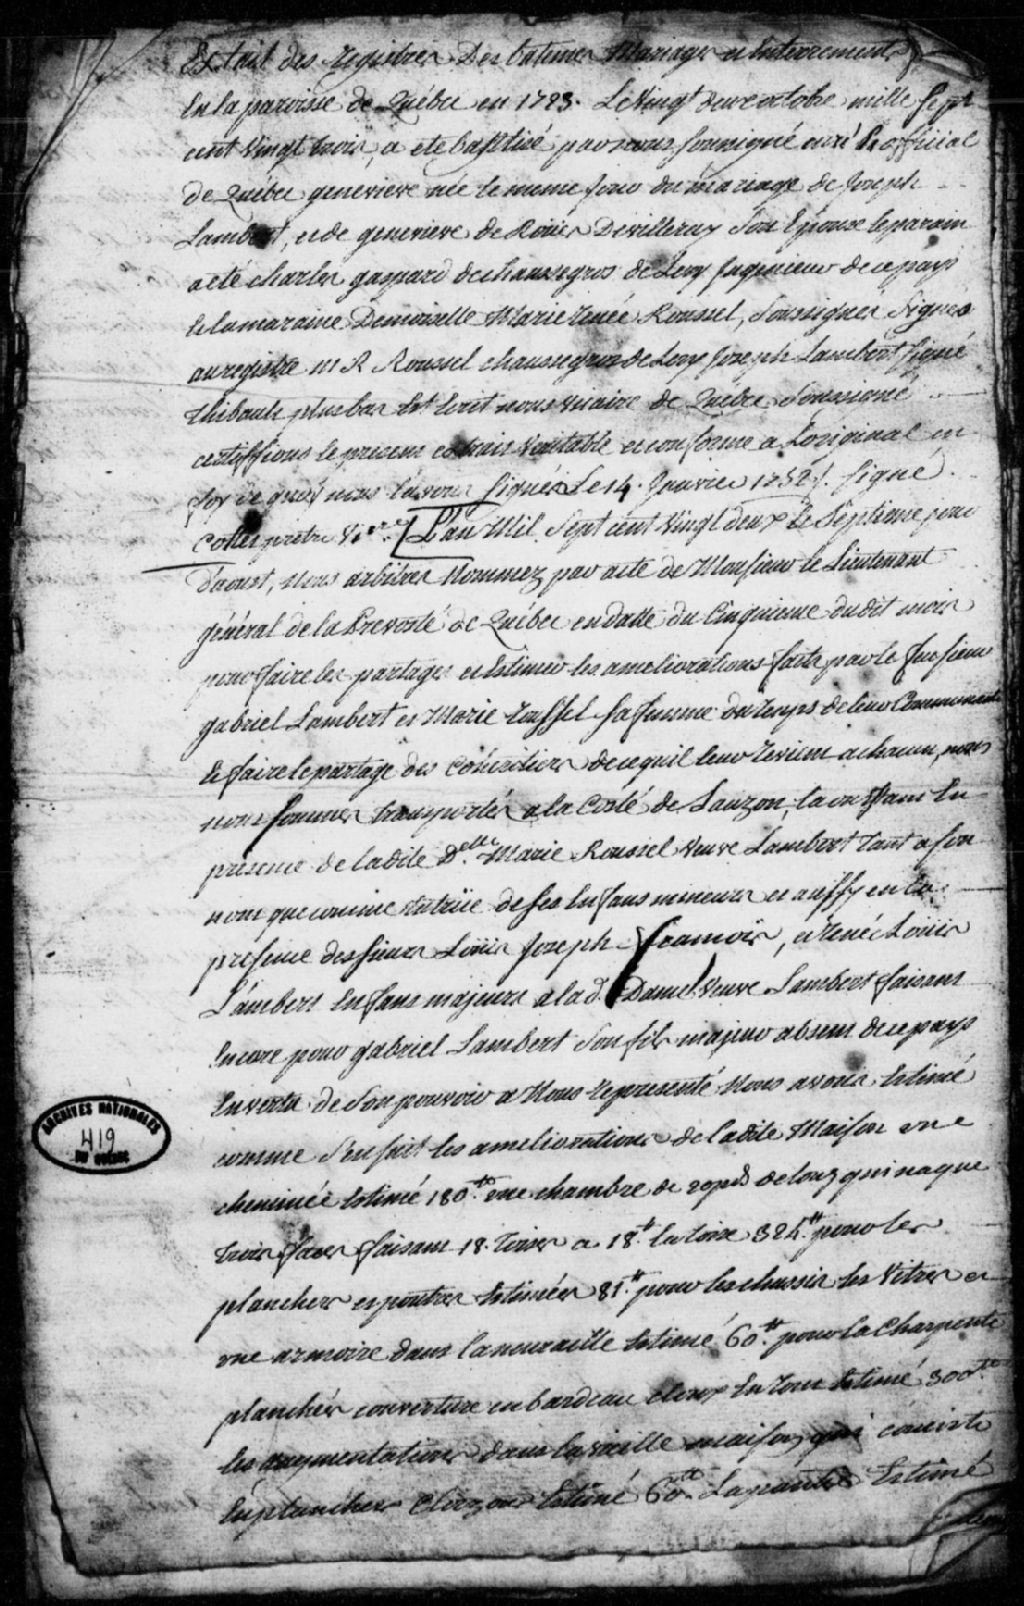 Extrait des registres Des batemes Mariages et Enterrements
En la paroisse de Québec en 1723. Le Vingt deux octobre mille Sept
cent Vingt trois, a ete baptisé par nous soussigné curé & official
de Québec genevieve née le meme jour du mariage de Joseph
Lambert, et de genevieve de Rouer Devilleray Son Epouse le parain
a eté charles gaspard dechaussegros de Lery Ingenieur de ce pays
& la maraine Demoiselle Marie renée Roussel, Soussignés Signés
au registre M R Roussel chaussegros de Lery Joseph Lambert signé
thibault plus bas Est Ecrit nous vicaire de Québec Soussigné
certiffions le present extrait Veritable et conforme a Loriginal en
foy de quoy nous l'avons signé Le 14. Janvier 1752 /. signé
prêtre Vi.re / L'an Mil Sept cent Vingt deux le Septieme jour
d'aoust, nous arbitres Nommez par acte de Monsieur le Lieutenant
général de la Prevosté de Québec en datte du Cinquieme dudit mois
pour faire les partages et Estimer les ameliorations faits par le feu sieur
gabriel Lambert et Marie roussel sa femme du temps de leur Communauté
& faire le partage des Coheritiers de ce quil leur revient a chacun, nous
nous sommes transportés a la Costé de Lauzon, la ou Estans En
presence de ladite D.elle Marie Roussel Veuve Lambert tant a son
nom que comme tutrice de ses Enfans mineurs et aussy en la
presence des sieurs Loüis Joseph francois, et René Loüis
Lambert Enfans majeurs a la d. Dame Veuve Lambert faisant
Encore pour gabriel Lambert Son fils majeur absent de ce pays
En vertu de Son pouvoir a Nous representé Nous avons Estimé
comme S'ensuit les ameliorations de ladite Maison une
cheminée Estimé 180.tt une chambre de 20 pds de long qui na que
trois faces faisant 18. toises a 18.tt la toise 324.tt pour les
planchers et poutres Estimées 81.tt pour les chassis les Vitres et
une armoire dans la muraille Estimé 60.tt pour la Charpente
planchés couverture en bardeau cloux En tout Estimé 300.tt
les augmentations dans la vieille maison qui consiste
En planches Estimé 60.tt Estimé
ARCHIVES NATIONALES
419
DU QUÉBEC